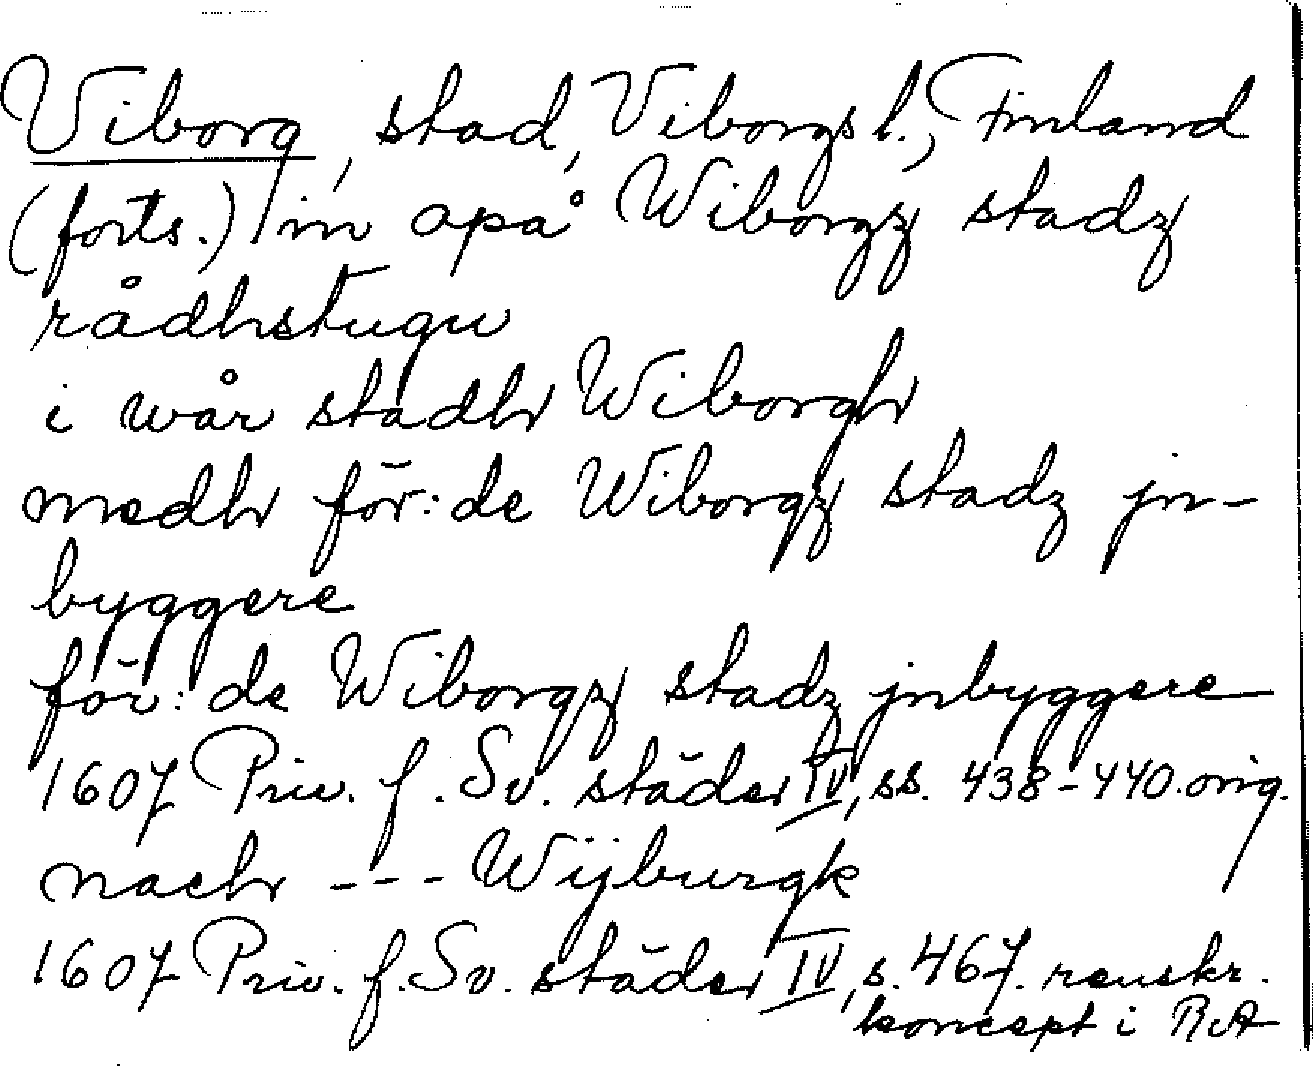 Viborg, stad, Viborgs l., Finland
(forts.) in opå Wiborgz stadz
rådhstugu
i wår stadh Wiborgh
medh för:de Wiborgz stadz jn-
byggere
för:de Wiborgz stadz jnbyggere
1607 Priv. f. Sv. städer IV, ss. 438-440. orig.
nach --- Wijburgk
1607 Priv. f. Sv. städer IV, s. 467. renskr.
koncept i RA